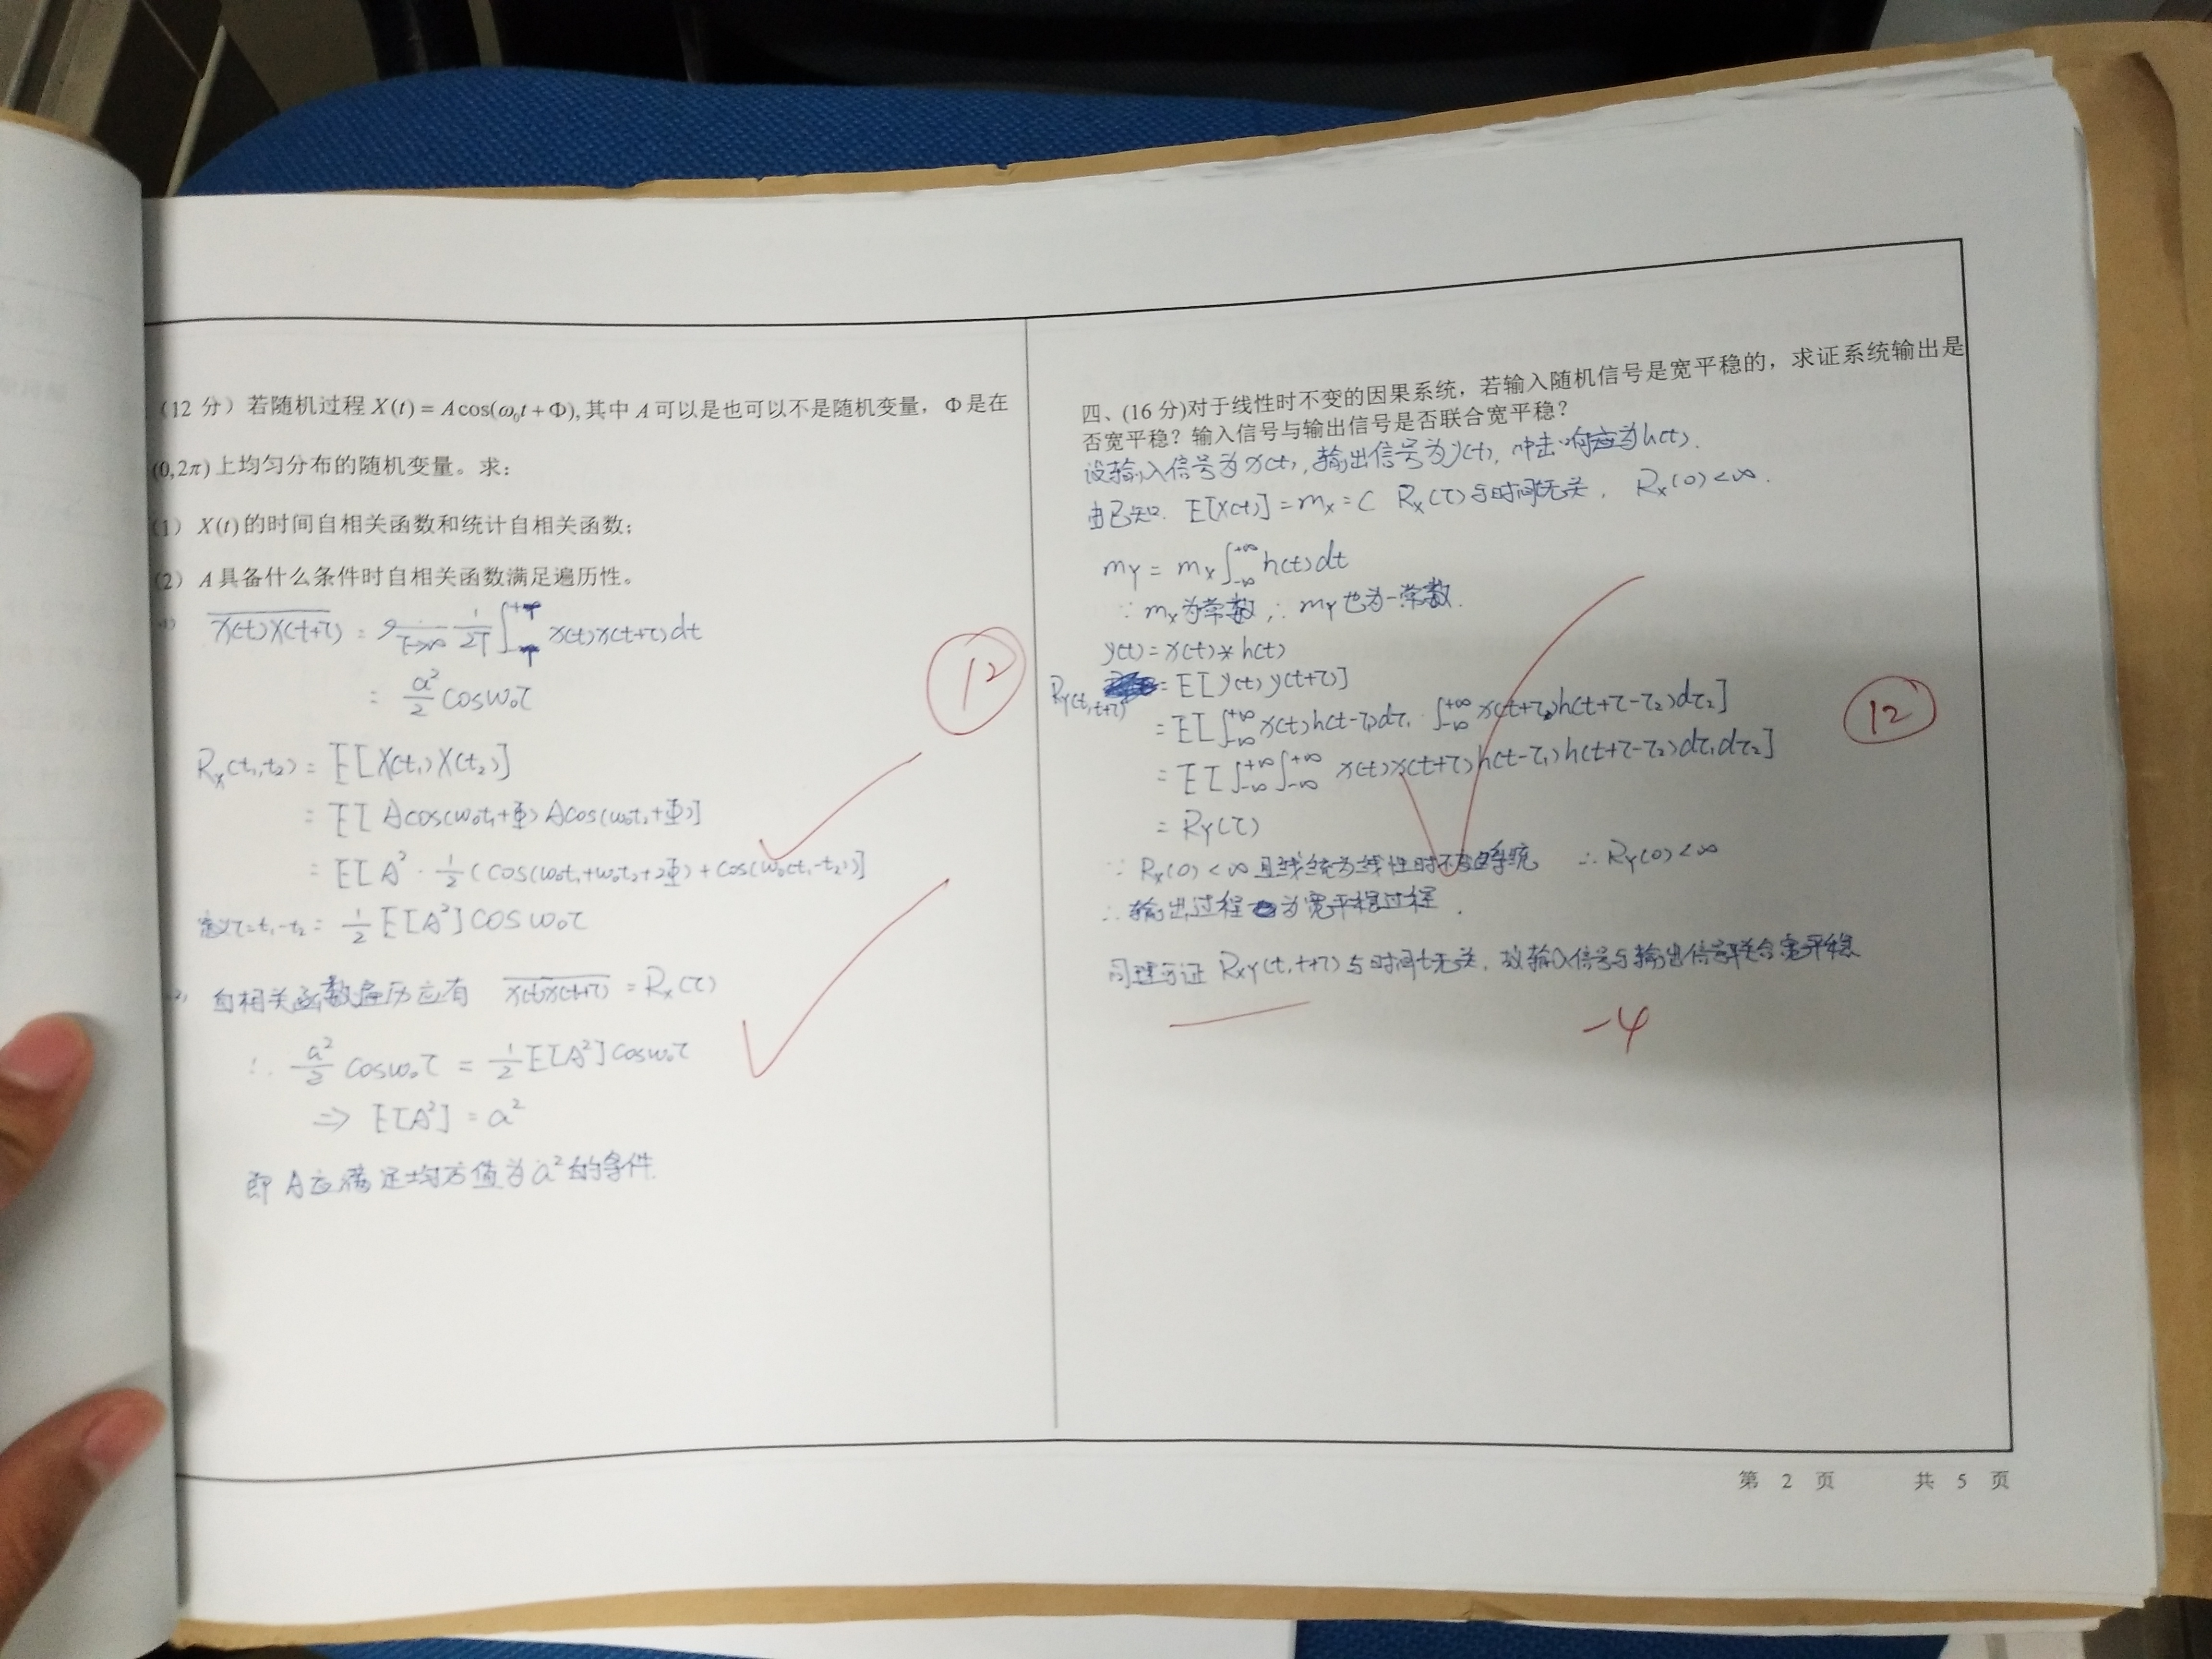 (12 分）若随机过程 X(t) = A cos(ω₀t + Φ), 其中 A 可以是也可以不是随机变量，Φ 是在
(0,2π) 上均匀分布的随机变量。求：
(1） X(t) 的时间自相关函数和统计自相关函数；
(2） A 具备什么条件时自相关函数满足遍历性。
X(t)X(t+τ) = T→∞ 1/2T ∫ x(t)x(t+τ)dt
= a²/2 cosω₀τ
Rx(t₁,t₂) = E[X(t₁)X(t₂)]
= E[Acos(ω₀t₁+Φ)Acos(ω₀t₂+Φ)]
= E[A²·1/2(cos(ω₀t₁+ω₀t₂+2Φ)+cos(ω₀(t₁-t₂))]
定义τ=t₁-t₂ = 1/2 E[A²]cosω₀τ
自相关函数遍历应有 x(t)x(t+τ) = Rx(τ)
∴ a²/2 cosω₀τ = 1/2 E[A²]cosω₀τ
⇒ E[A²] = a²
即 A应满足均方值为a²的条件.
12
四、(16 分)对于线性时不变的因果系统，若输入随机信号是宽平稳的，求证系统输出是
否宽平稳？输入信号与输出信号是否联合宽平稳？
设输入信号为x(t), 输出信号为y(t), 冲击响应为h(t).
由已知. E[X(t)] = mx = C Rx(τ)与时间t无关, Rx(0)<∞.
mY = mx ∫₋∞⁺∞ h(t)dt
∵ mx为常数, ∴ mY也为一常数.
y(t) = x(t)*h(t)
RY(t,t+τ) = E[y(t)y(t+τ)]
= E[∫₋∞⁺∞ x(t)h(t-τ₁)dτ₁ · ∫₋∞⁺∞ x(t+τ)h(t+τ-τ₂)dτ₂]
= E[∫₋∞⁺∞∫₋∞⁺∞ x(t)x(t+τ)h(t-τ₁)h(t+τ-τ₂)dτ₁dτ₂]
= RY(τ)
∵ Rx(0)<∞ 且系统为线性时不变系统 ∴ RY(0)<∞
∴ 输出过程为宽平稳过程.
同理可证 RXY(t,t+τ)与时间t无关, 故输入信号与输出信号联合宽平稳
12
-4
第 2 页 共 5 页